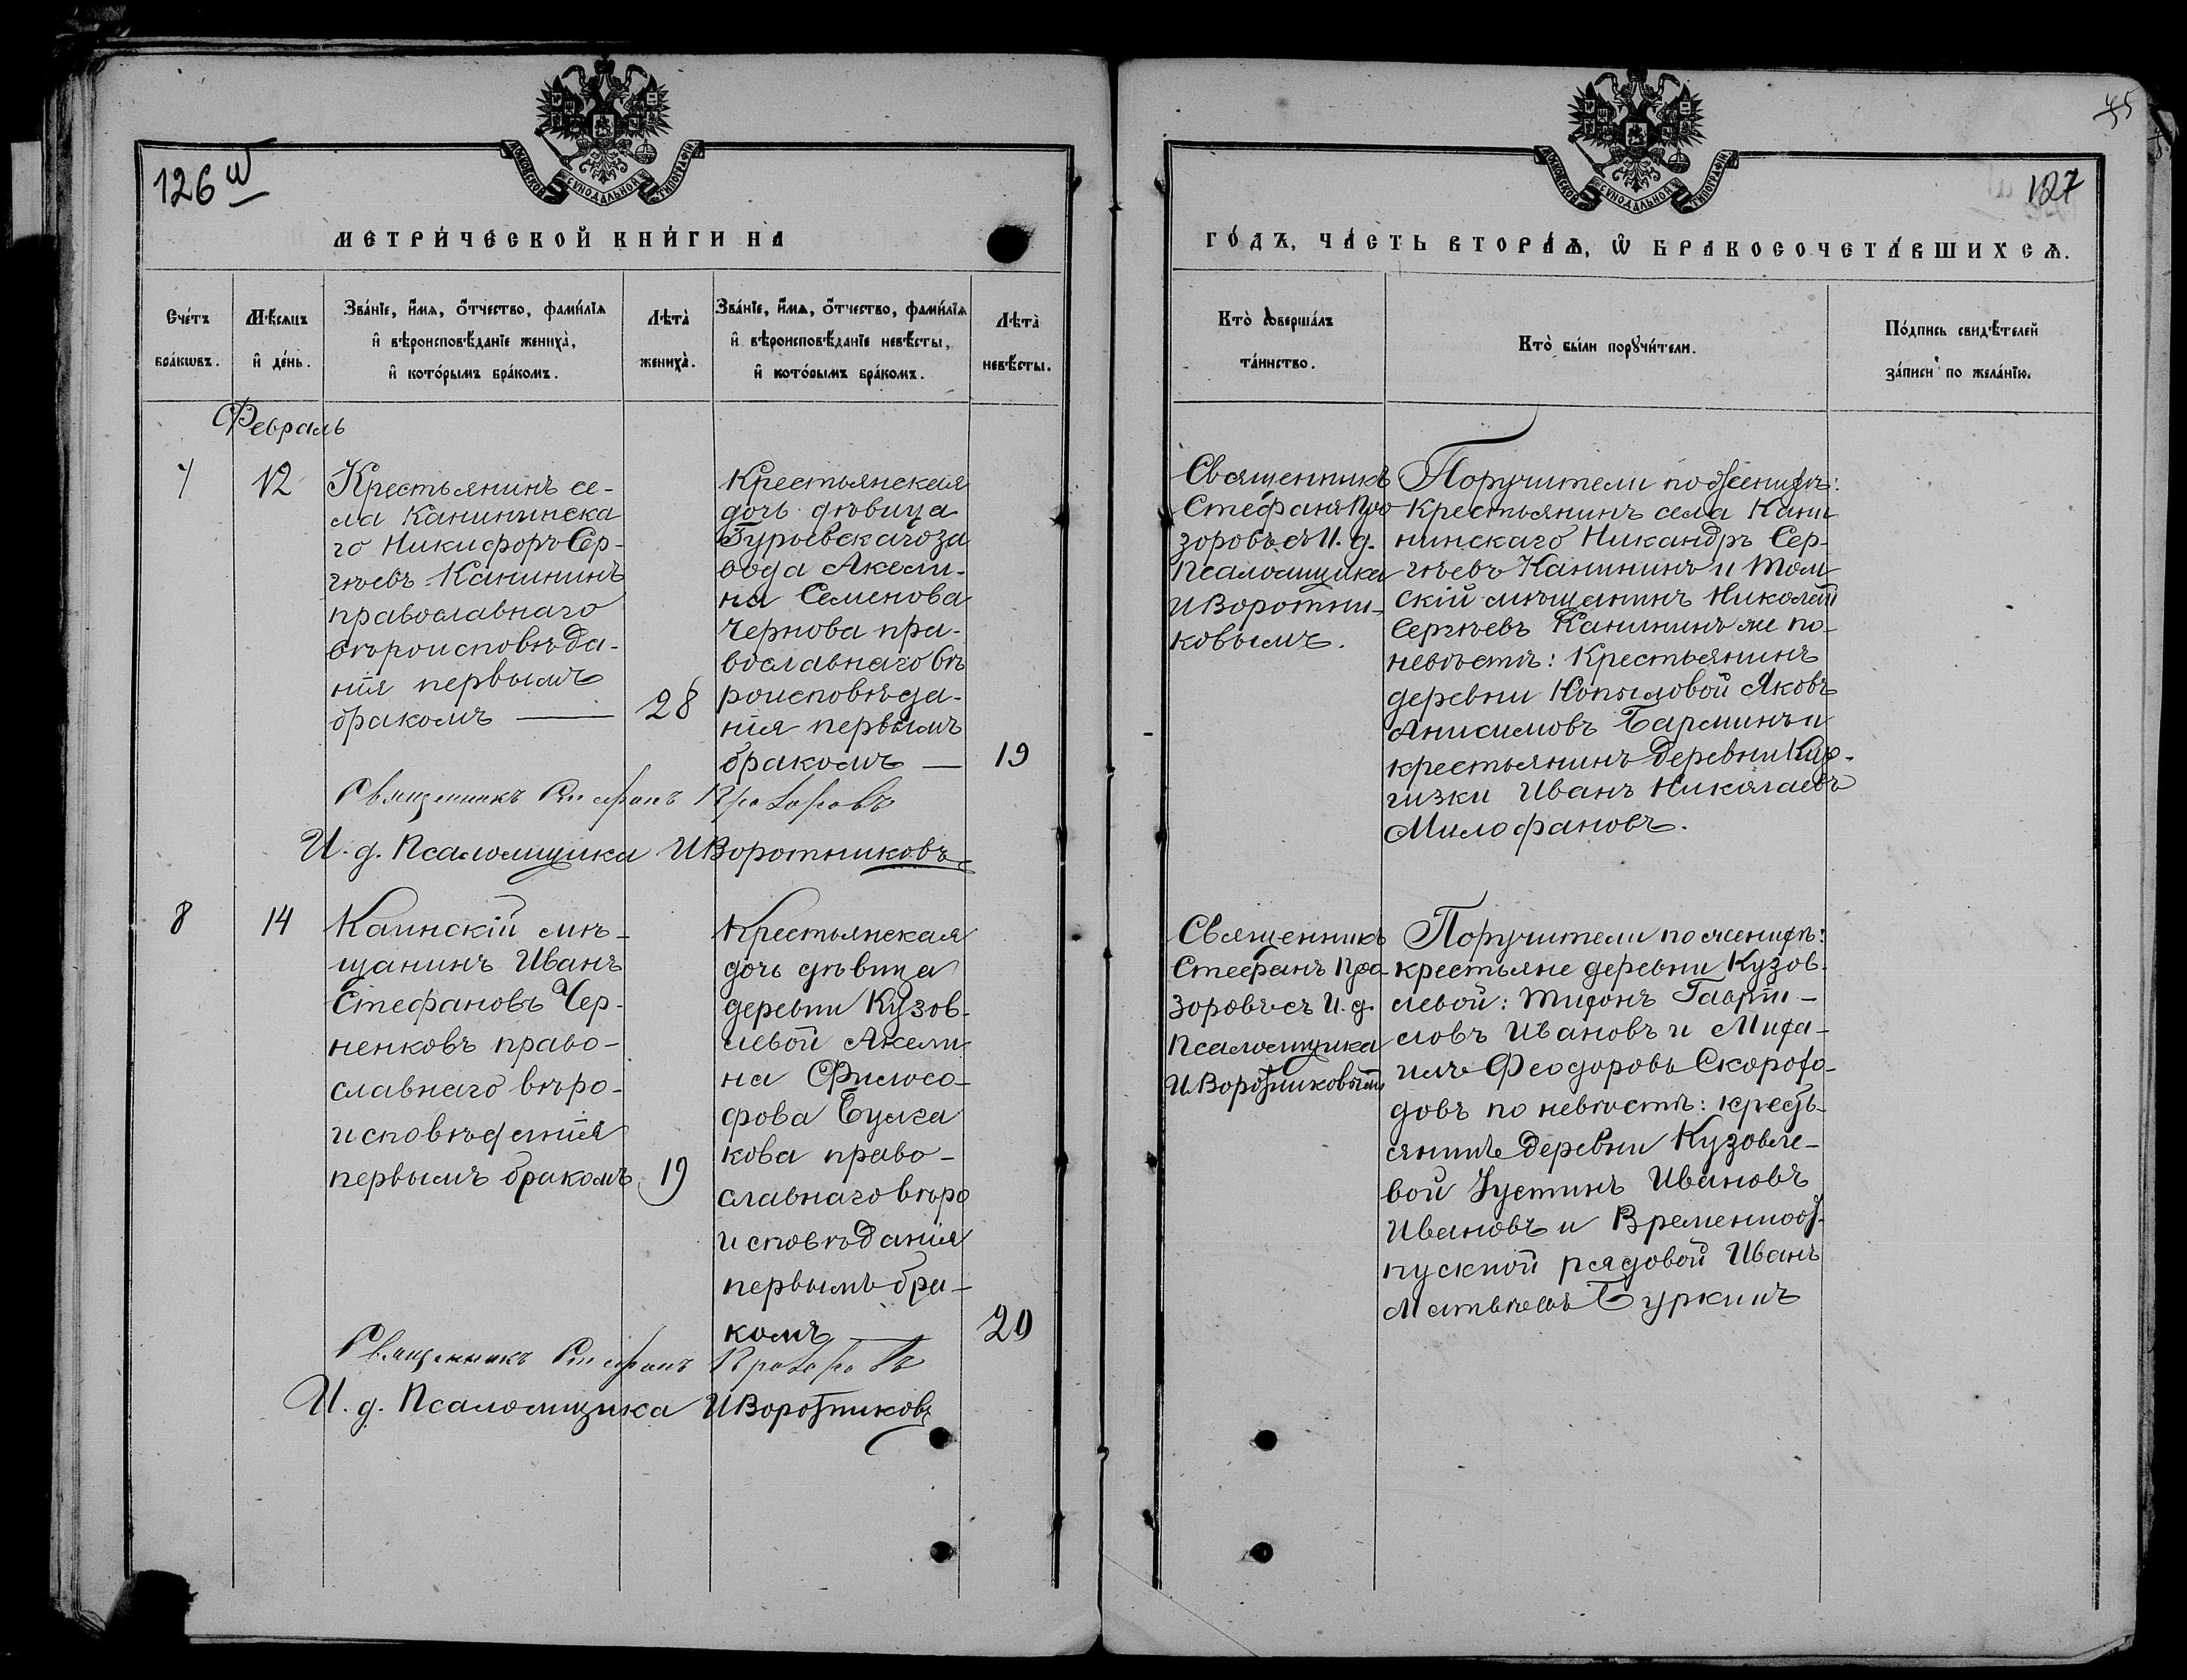 126 ш
МОСКОВСКОЙ СУНОДАЛЬНОЙ ТИПОГРАФІИ
МЕТРИ́ЧЕСКОЙ КНИ́ГИ НА
Сче́тъ бра́кωвъ.
Мѣ́сяцъ и҆ де́нь.
Зва́нїе, и҆́мя, ѻ҆́тчество, фами́лїя и҆ вѣроисповѣ́данїе жениха̀, и҆ кото́рымъ бра́комъ.
Лѣта̀ жениха̀.
Зва́нїе, и҆́мя, ѻ҆́тчество, фами́лїя и҆ вѣроисповѣ́данїе невѣ́сты, и҆ кото́рымъ бра́комъ.
Лѣта̀ невѣ́сты.
Февраль
7
12
Крестьянинъ се-
ла Канининска
го Никифоръ Сер-
гѣевъ Канининъ
православнаго
вѣроисповѣда-
нія первымъ
бракомъ —
28
Крестьянская
дочь дѣвица
Гурьевскаго за
вода Акели-
на Семенова
Чернова пра-
вославнаго вѣ
роисповѣда-
нія первымъ
бракомъ —
19
Священникъ Стефанъ Прозоровъ
И. д. Псаломщика И Воротниковъ
8
14
Каинскій мѣ-
щанинъ Иванъ
Стефановъ Чер-
ненковъ право-
славнаго вѣро-
исповѣданія
первымъ бракомъ
19
Крестьянская
дочь дѣвица
деревни Кузов-
левой Акели
на Филосо-
фова Булга
кова право-
славнаго вѣро
исповѣданія
первымъ бра-
комъ —
20
Священникъ Стефанъ Прозоровъ
И. д. Псаломщика И Воротниковъ
127
МОСКОВСКОЙ СУНОДАЛЬНОЙ ТИПОГРАФІИ
ГО́ДЪ, ЧА́СТЬ ВТОРА́Ѧ, Ѽ БРАКОСОЧЕТА́ВШИХСѦ.
Кто̀ соверша́лъ та́инство.
Кто̀ бы́ли порꙋчи́тели.
По́дпись свидѣ́телей за́писи по жела́нїю.
Священникъ
Стефанъ Про
зоровъ съ И. д.
Псаломщика
И Воротни-
ковымъ.
Поручители по женихѣ:
Крестьянинъ села Кани
нинскаго Никандръ Сер-
гѣевъ Канининъ и Том
скій мѣщанинъ Николай
Сергѣевъ Канининъ же по
невѣстѣ: Крестьянинъ
деревни Копыловой Яковъ
Анисимовъ Барминъ и
крестьянинъ деревни Кир-
гизки Иванъ Николаевъ
Милофановъ.
Священникъ
Стефанъ Про-
зоровъ съ И. д.
Псаломщика
И. Воротниковымъ
Поручители по женихѣ:
крестьяне деревни Кузов-
левой: Тихонъ Гаври-
ловъ Ивановъ и Миха-
илъ Феодоровъ Скорохо-
довъ по невѣстѣ: кресть-
янинъ деревни Кузовле-
вой Устинъ Ивановъ
Ивановъ и Временноот-
пускной рядовой Иванъ
Матвѣевъ Буркинъ